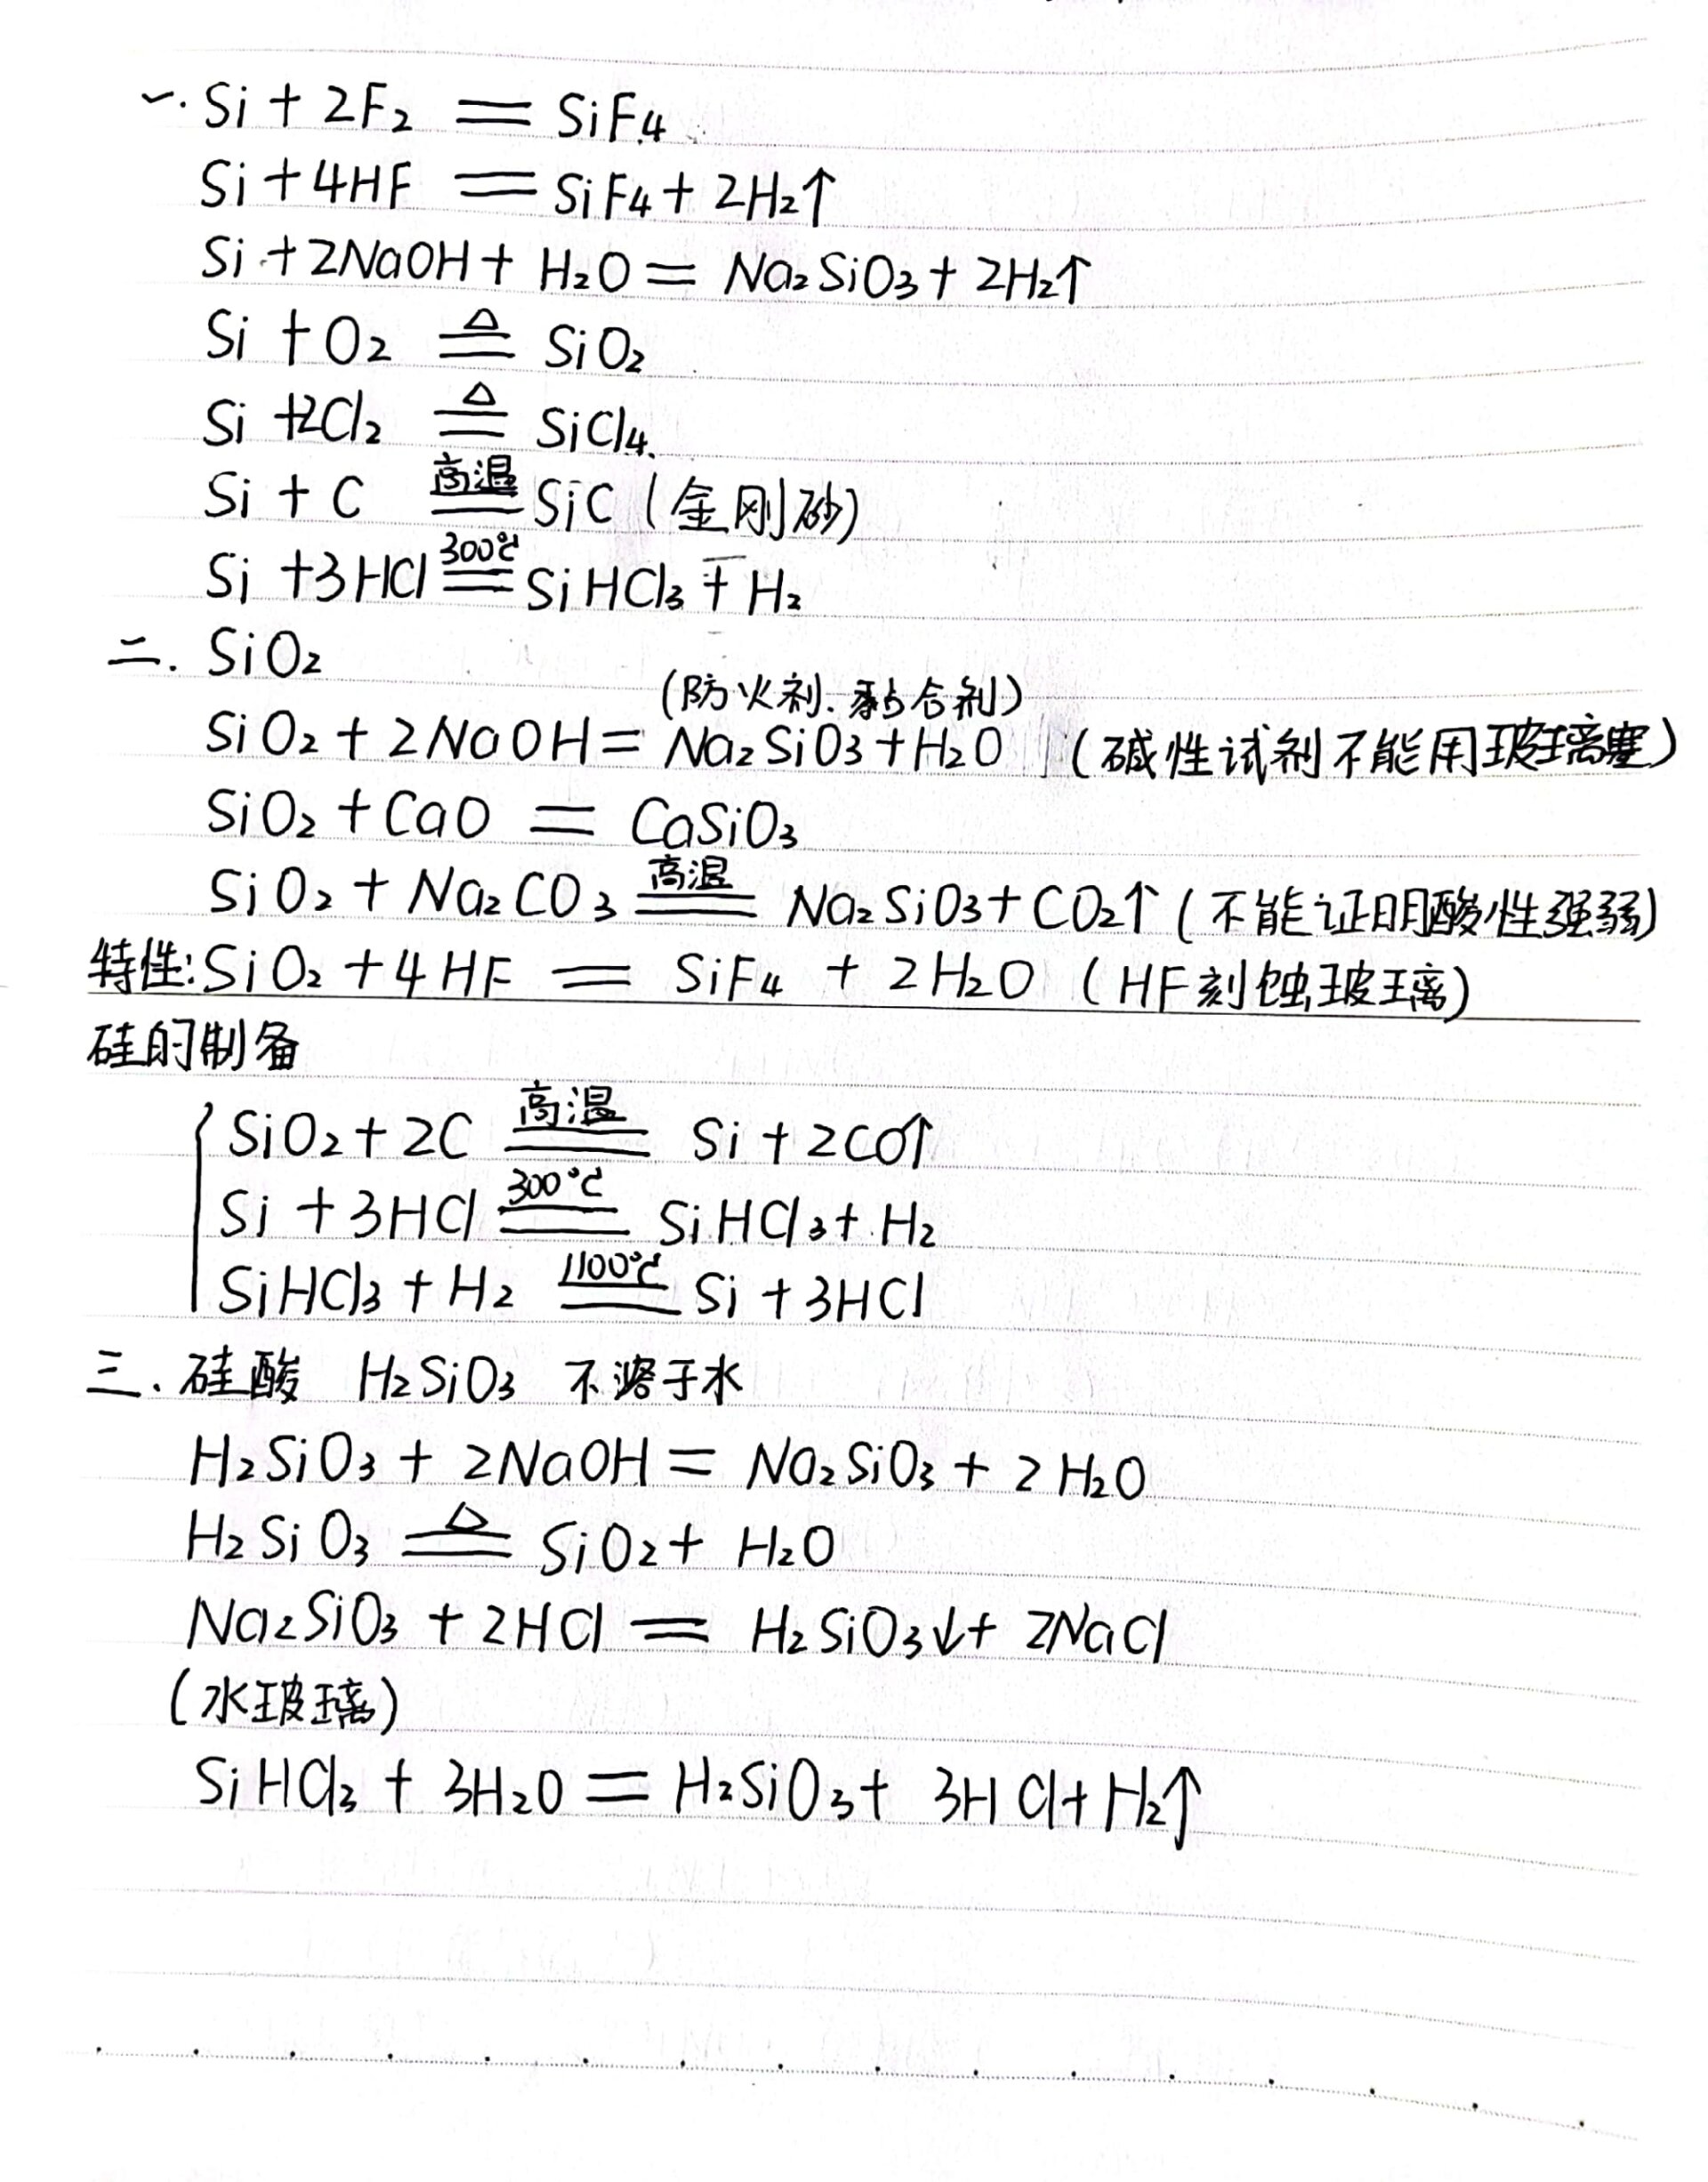 一. Si + 2F₂ == SiF₄
Si + 4HF == SiF₄ + 2H₂↑
Si + 2NaOH + H₂O = Na₂SiO₃ + 2H₂↑
Si + O₂ ≜ SiO₂
Si + 2Cl₂ ≜ SiCl₄
Si + C 高温== SiC (金刚砂)
Si + 3HCl 300℃== SiHCl₃ + H₂
二. SiO₂
(防火剂. 黏合剂)
SiO₂ + 2NaOH = Na₂SiO₃ + H₂O (碱性试剂不能用玻璃塞)
SiO₂ + CaO == CaSiO₃
SiO₂ + Na₂CO₃ 高温== Na₂SiO₃ + CO₂↑ (不能证明酸性强弱)
特性: SiO₂ + 4HF == SiF₄ + 2H₂O (HF刻蚀玻璃)
硅的制备
SiO₂ + 2C 高温== Si + 2CO↑
Si + 3HCl 300℃== SiHCl₃ + H₂
SiHCl₃ + H₂ 1100℃== Si + 3HCl
三. 硅酸 H₂SiO₃ 不溶于水
H₂SiO₃ + 2NaOH = Na₂SiO₃ + 2H₂O
H₂SiO₃ ≜ SiO₂ + H₂O
Na₂SiO₃ + 2HCl == H₂SiO₃↓ + 2NaCl
(水玻璃)
SiHCl₃ + 3H₂O == H₂SiO₃ + 3HCl + H₂↑